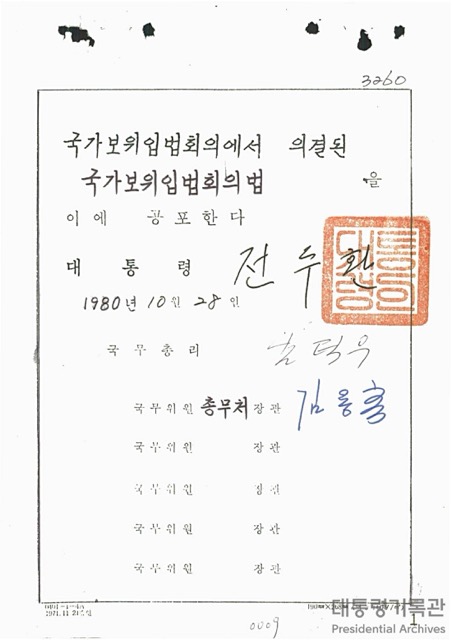 3260
국가보위입법회의에서 의결된
국가보위입법회의법 을
이에 공포한다
대통령 전두환
대통령의인
1980년 10월 28일
국무총리 남덕우
국무위원 총무처장관 김용휴
국무위원 장관
국무위원 장관
국무위원 장관
국무위원 장관
대통령기록관
1
0009
Presidential Archives